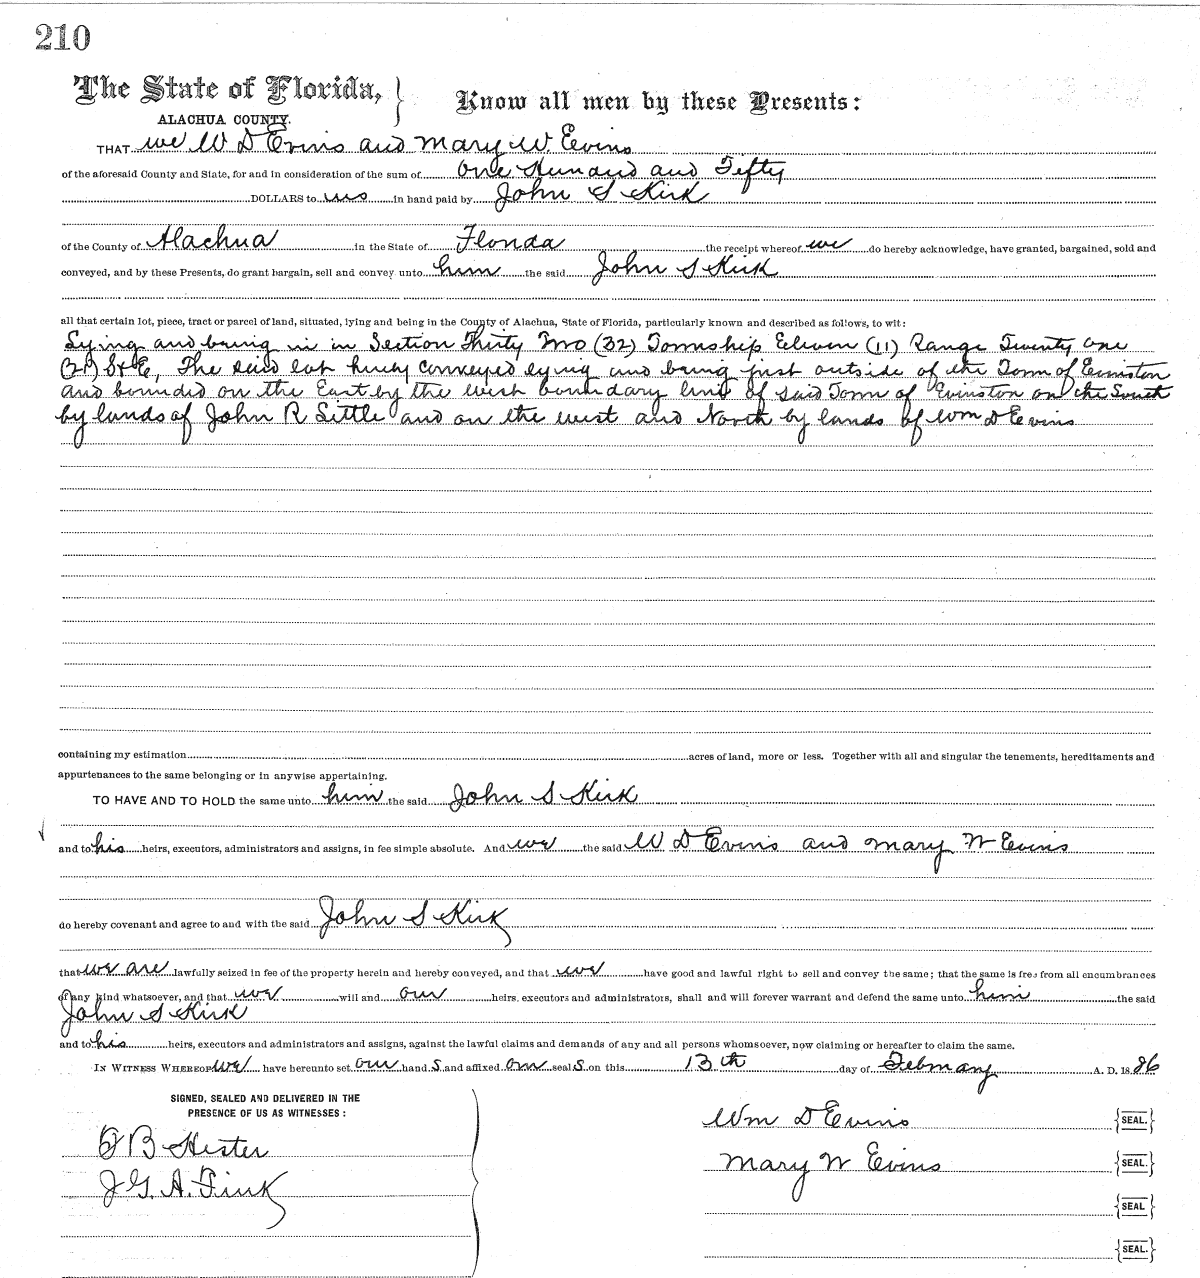 210
The State of Florida,
ALACHUA COUNTY.
Know all men by these Presents:
THAT we W D Evins and Mary W. Evins
of the aforesaid County and State, for and in consideration of the sum of One Hundred and Fifty
DOLLARS to us in hand paid by John S Kirk
of the County of Alachua in the State of Florida the receipt whereof we do hereby acknowledge, have granted, bargained, sold and
conveyed, and by these Presents, do grant bargain, sell and convey unto him the said John S Kirk
all that certain lot, piece, tract or parcel of land, situated, lying and being in the County of Alachua, State of Florida, particularly known and described as follows, to wit:
Lying and being in in Section Thirty Two (32) Township Eleven (11) Range Twenty one
(21) S & E, The said lot hereby conveyed lying and being just outside of the Town of Evinston
and bounded on the East by the west boundary line of said Town of Evinston on the South
by lands of John R Little and on the west and North by lands of Wm D Evins
containing my estimation acres of land, more or less. Together with all and singular the tenements, hereditaments and
appurtenances to the same belonging or in anywise appertaining.
TO HAVE AND TO HOLD the same unto him the said John S Kirk
and to his heirs, executors, administrators and assigns, in fee simple absolute. And we the said W D Evins and Mary W Evins
do hereby covenant and agree to and with the said John S Kirk
that we are lawfully seized in fee of the property herein and hereby conveyed, and that we have good and lawful right to sell and convey the same; that the same is free from all encumbrances
of any kind whatsoever, and that we will and our heirs, executors and administrators, shall and will forever warrant and defend the same unto him the said
John S Kirk
and to his heirs, executors and administrators and assigns, against the lawful claims and demands of any and all persons whomsoever, now claiming or hereafter to claim the same.
IN WITNESS WHEREOF we have hereunto set our hand s and affixed our seal s on this 13th day of February A. D. 1886
SIGNED, SEALED AND DELIVERED IN THE
PRESENCE OF US AS WITNESSES:
B Hester
J. G. A. Fink
Wm D Evins SEAL.
Mary W Evins SEAL.
SEAL
SEAL.